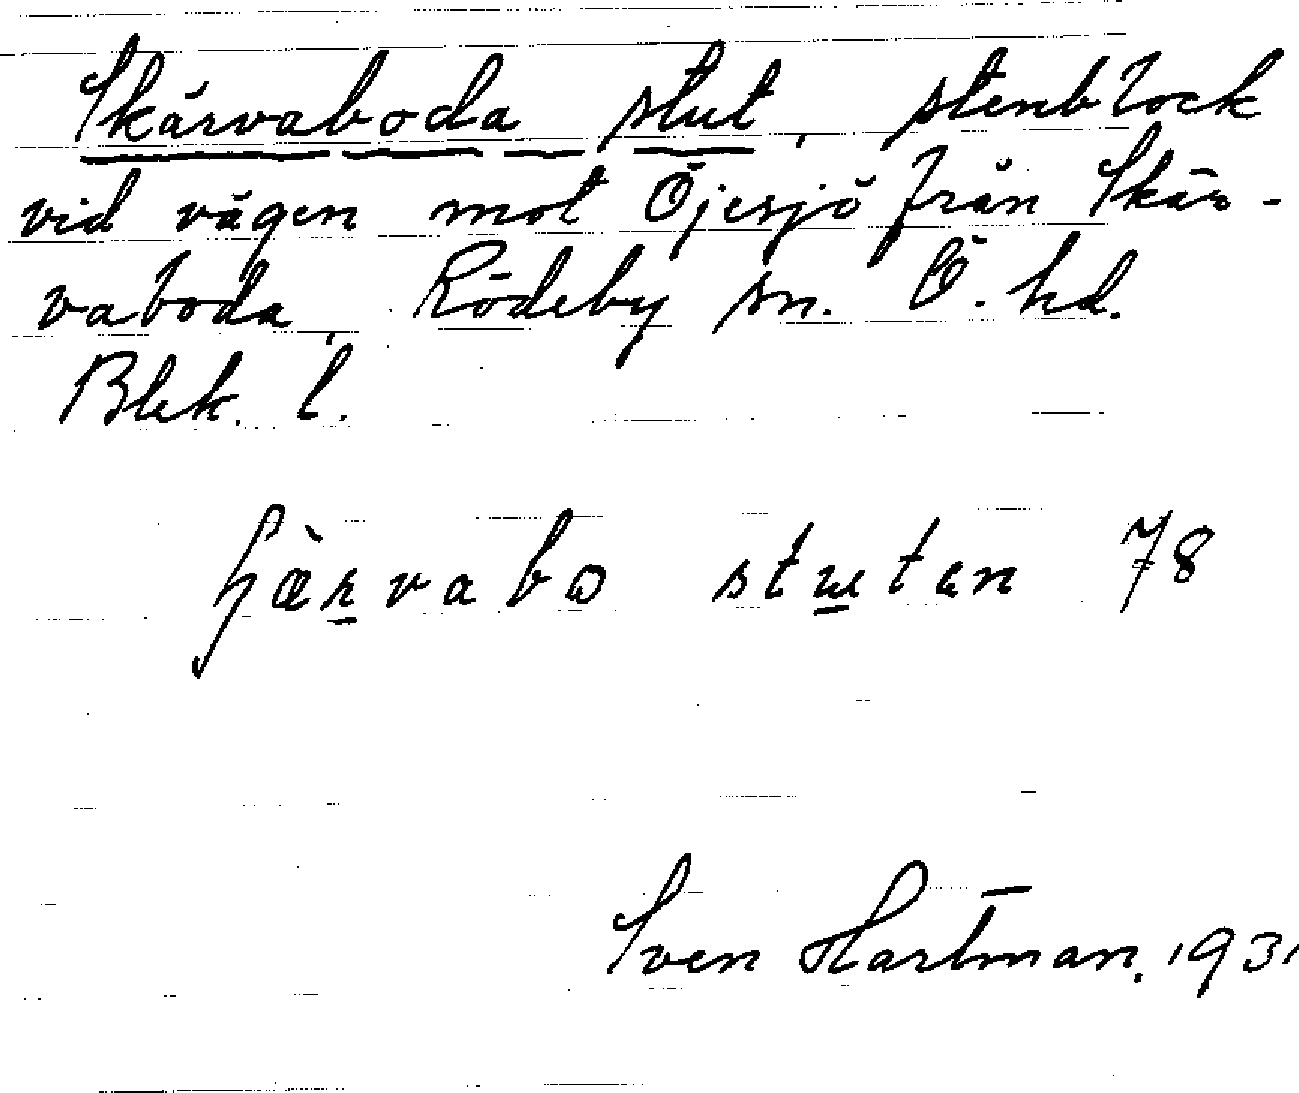 Skärvaboda stut, stenblock
vid vägen mot Öjesjö från Skär-
vaboda, Rödeby sn. Ö. hd.
Blek. l.
stutan 78
Sven Hartman. 1931